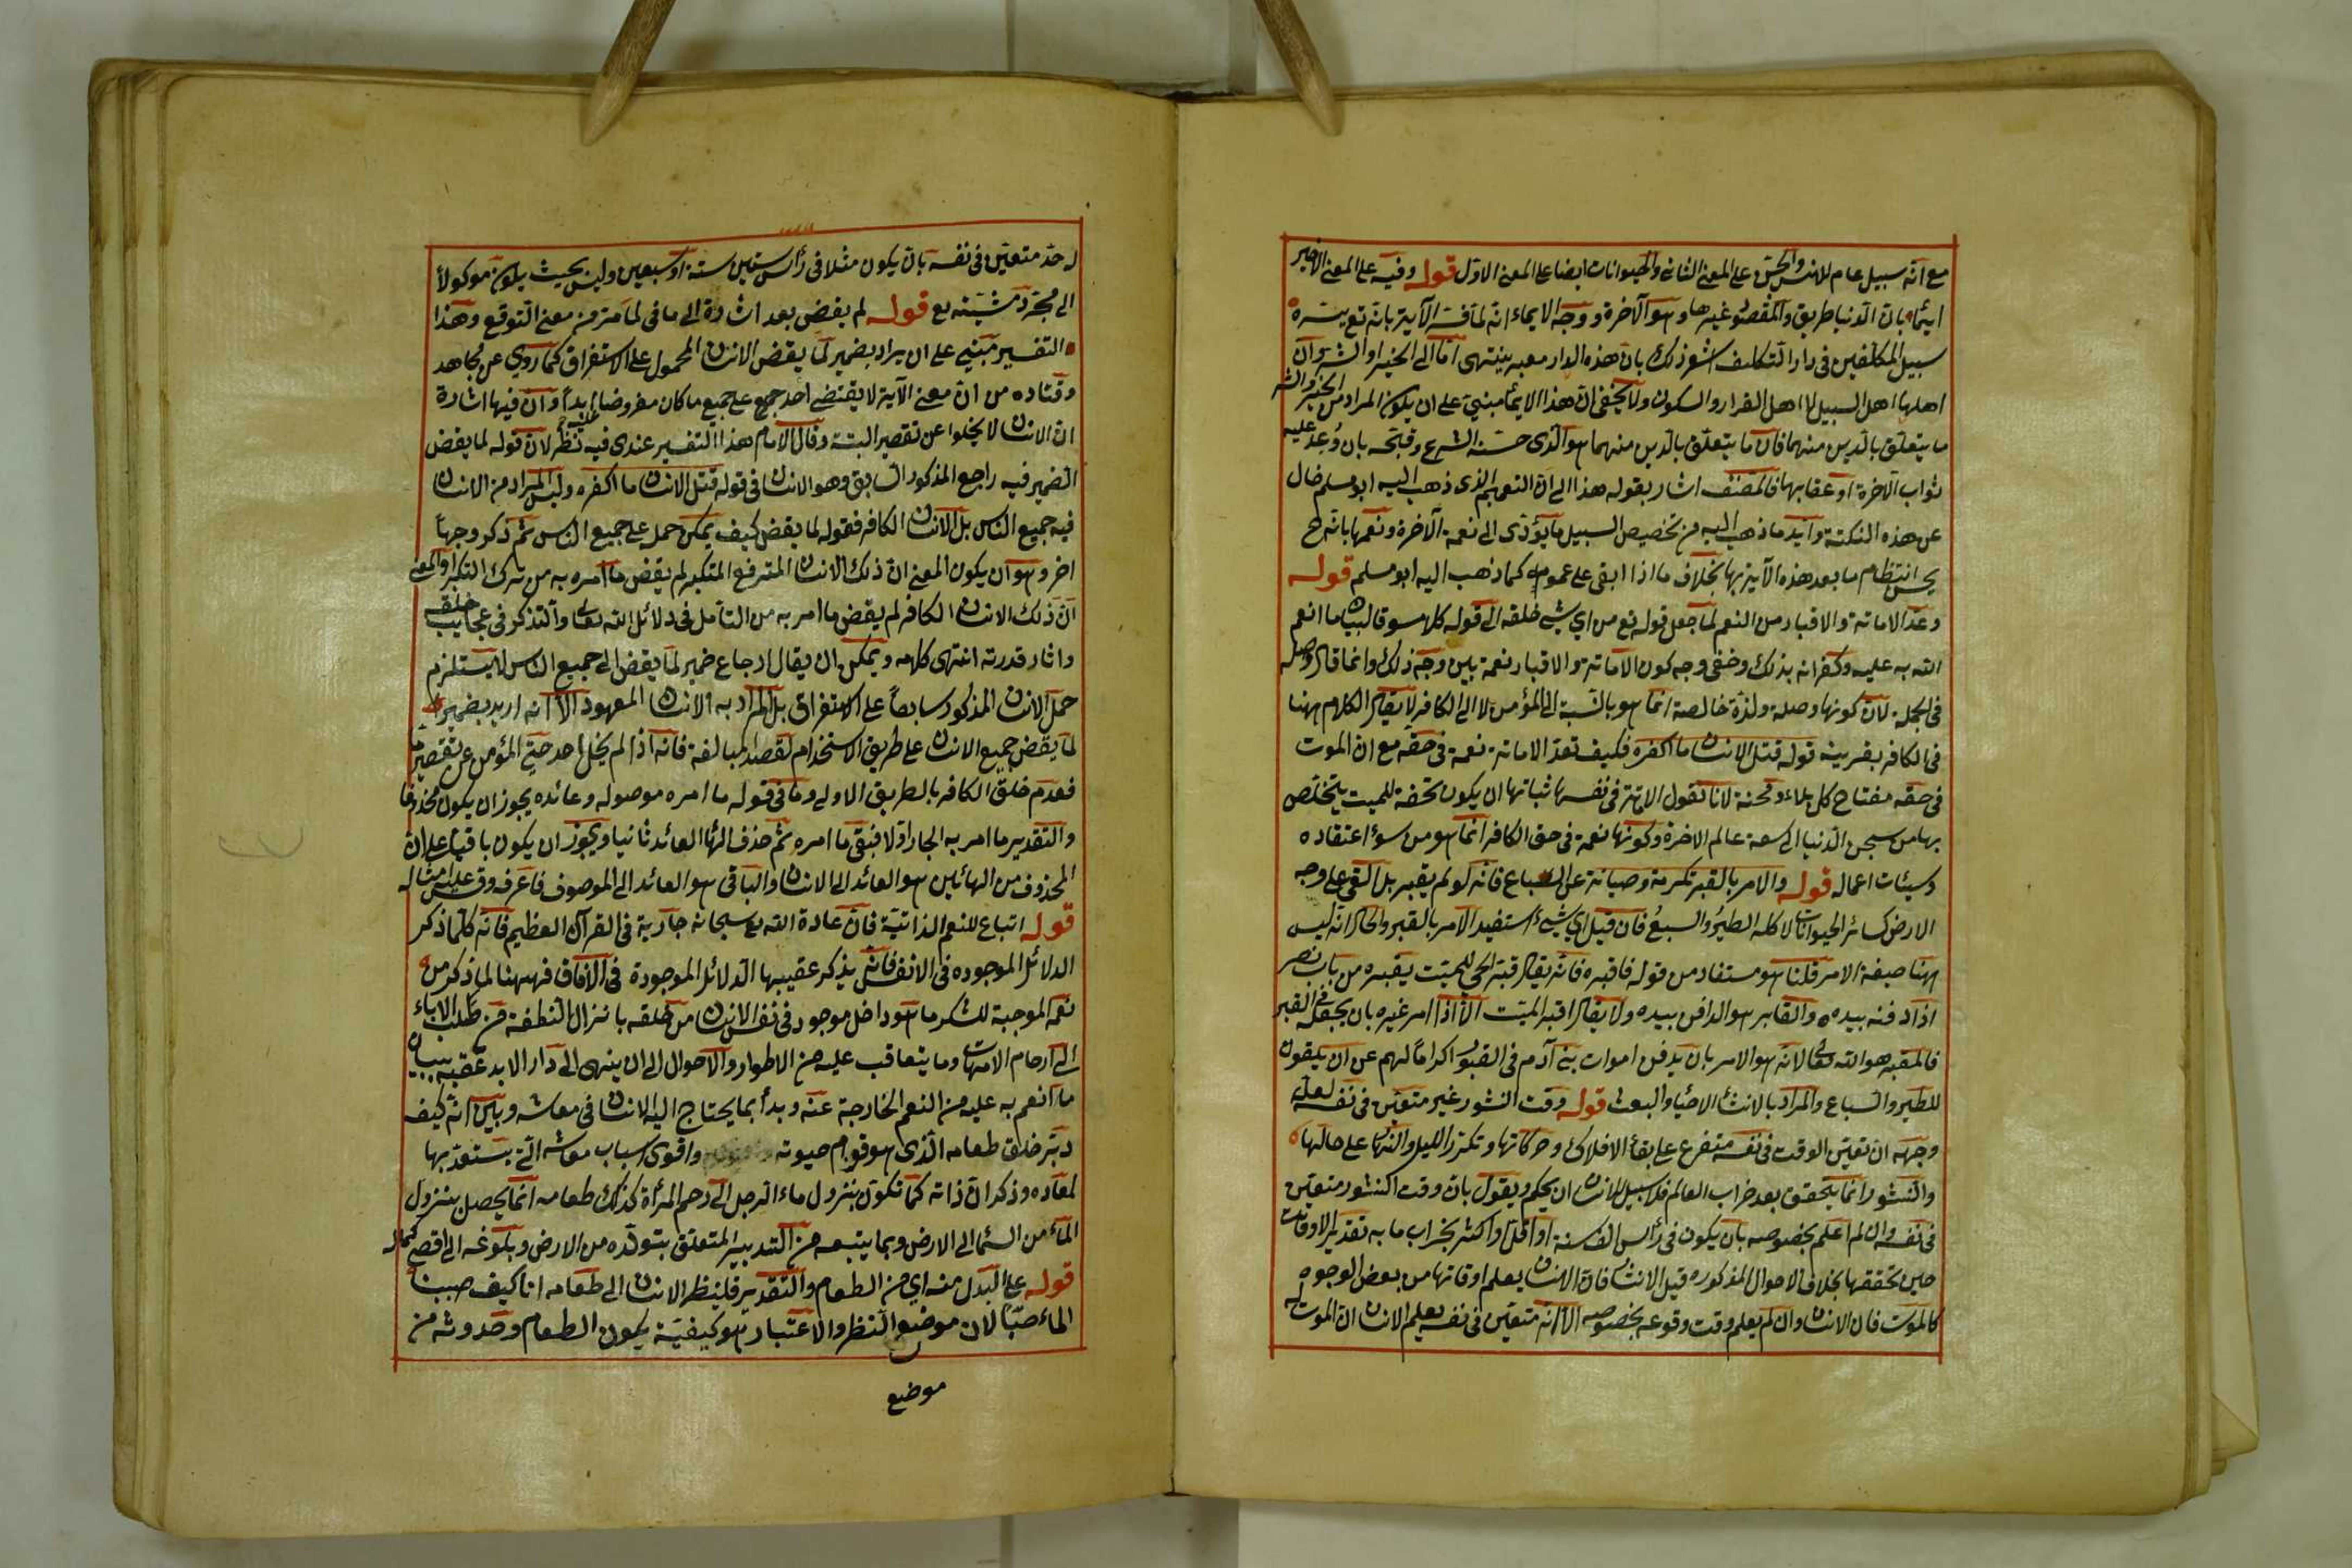 مع انه سبيل عام للانس والجن على المعنى الثانى والحيوانات ايضا على المعنى الاول قوله وفيه على المعنى الاخير
ايماء بان الدنيا طريق والمقصود غيرها وهو الآخرة ووجه الايماء انه لما فسر الآية بانه تع يسره
سبيل المكلفين فى دار التكليف اشعر ذلك بان هذه الدار معبر ينتهى اما الى الخير او الشر وان
اهلها اهل السبيل لا اهل القرار والسكون ولا يخفى ان هذا الايماء مبنى على ان يكون المراد من الخير والشر
ما يتعلق بالدين منهما فان ما يتعلق بالدين منهما هو الذى حسنه الشرع وقبحه بان وُعد عليه
ثواب الآخرة او عقابها فالمصنف اشار بقوله هذا الى ان التعميم الذى ذهب اليه ابو مسلم خال
عن هذه النكتة وايد ما ذهب اليه من تخصيص السبيل ما يؤدى الى نعمة الآخرة ونعمها بانه ح
يحسن انتظام ما بعد هذه الآية بها بخلاف ما اذا ابقى على عمومه كما ذهب اليه ابو مسلم قوله
وعد الاماتة والاقبار من النعم لما جعل قوله تع من اي شئ خلقه الى قوله كلا مسوقا لبيان ما انعم
الله به عليه وكفرانه بذلك وخفى وجه كون الاماتة والاقبار نعمة بين وجه ذلك وانما قال وصلة
فى الجملة لان كونها وصلة ولذة خالصة انما هو بالنسبة الى المؤمن لا الى الكافر لا يقال الكلام ههنا
فى الكافر بقرينة قوله قتل الانسان ما اكفره فكيف تعد الاماتة نعمة فى حقه مع ان الموت
فى حقه مفتاح كل بلاء ومحنة لانا نقول الاماتة فى نفسها شانها ان يكون تحفة للميت يتخلص
بها من سجن الدنيا الى سعة عالم الاخرة وكونها نقمة فى حق الكافر انما هو من سوء اعتقاده
وسيئات اعماله قوله والامر بالقبر تكرمة وصيانة عن السباع فانه لو لم يقبر بل القى على وجه
الارض كسائر الحيوانات لاكله الطيرُ والسبعُ فان قيل اي شئ استفيد الامر بالقبر والحال انه ليس
ههنا صيغة الامر قلنا هو مستفاد من قوله فاقبره فانه يقال قبر الحي للميت يقبره من باب نصر
اذا دفنه بيده والقابر هو الدافن بيده ولا يقال اقبر الميت الا اذا امر غيره بان يجعله فى القبر
فالمقبر هو الله تعالى لانه هو الامر بان يدفن اموات بنى آدم فى القبور اكراما لهم عن ان يلقون
للطير والسباع والمراد بالانشاء الاحياء والبعث قوله وقت النشور غير متعين فى نفسه لعل
وجهه ان تعين الوقت فى نفسه متفرع على بقاء الافلاك وحركاتها وتكرر الليل والنهار على حالها
والنشور انما يتحقق بعد خراب العالم فلا سبيل للانسان ان يحكم ويقول بان وقت النشور متعين
فى نفسه وان لم اعلم بخصوصه بان يكون فى رأس الف سنة او اقل او اكثر بخراب ما به تقدير الاوقات
حين تحققها بخلاف الاحوال المذكوره قبل الانشار فان الانسان يعلم اوقاتها من بعض الوجوه
كالموت فان الانسان وان لم يعلم وقت وقوعه بخصوصه الا انه متعين فى نفسه يعلم الانسان ان الموت
له حد متعين فى نفسه بان يكون مثلا فى رأس ستين سنة او سبعين وليس بحيث يكون موكولا
الى مجرد مشيته تع قوله لم يقض بعد اشارة الى ما فى لما مر من معنى التوقع وهذا
التفسير مبني على ان يراد بضمير لما يقض الانسان المحمول على الاستغراق كما روي عن مجاهد
وقتاده من ان معنى الآية لا يقتضى احد جميع على جميع ما كان مفروضا ابدا وان فيها اشارة
ان الانسان لا يخلوا عن تقصير البتة وقال الامام هذا التفسير عندى فيه نظر لان قوله لما يقض
الضمير فيه راجع المذكور السابق وهو الانسان فى قوله قتل الانسان ما اكفره وليس المراد من الانسان
فيه جميع الناس بل الانسان الكافر فقوله لما يقض كيف يمكن حمله على جميع الناس ثم ذكر وجها
اخر وهو ان يكون المعنى ان ذلك الانسان المترفع المتكبر لم يقض ما امره به من ترك التكبر او المعنى
ان ذلك الانسان الكافر لم يقض ما امر به من التأمل فى دلائل الله تعالى والتذكر فى عجايب خلقه
واثار قدرته انتهى كلامه ويمكن ان يقال ارجاع ضمير لما يقض الى جميع الناس لا يستلزم
حمل الانسان المذكور سابقا على الاستغراق بل المراد به الانسان المعهود الا انه اريد بضمير
لما يقض جميع الانسان على طريق الاستخدام لقصد المبالغة فانه اذا لم يخل احد حتى المؤمن عن تقصير ما
فعدم خلو الكافر بالطريق الاولى وما فى قوله ما امره موصوله وعائده يجوز ان يكون محذوفا
والتقدير ما امر به الجار اولا فبقى ما امره ثم حذف الهاء العائد ثانيا ويجوز ان يكون باقيا على ان
المحذوف من الهائين هو العائد الى الانسان والباقى هو العائد الى الموصوف فاعرفه وقس عليه امثاله
قوله اتباع للنعم الذاتية فان عادة الله تع سبحانه جارية فى القرآن العظيم فانه كلما ذكر
الدلائل الموجوده فى الانفس فانه يذكر عقيبها الدلائل الموجودة فى الآفاق فههنا لما ذكر من
نعمه الموجبة للشكر ما هو داخل موجود فى نفس الانسان من خلقه بانزال النطفة من صلب الاباء
الى ارحام الامهات وما يتعاقب عليه من الاطوار والاحوال الى ان ينهى الى دار الابد عقبه ببيان
ما انعم به عليه من النعم الخارجة عنه وبدأ بما يحتاج اليه الانسان فى معاشه وبين انه كيف
دبر خلق طعامه الذى هو قوام حيوته واقوى اسباب معاشه التى يستعد بها
لمعاده وذكر ان ذاته كما تكون بنزول ماء الرجل الى رحم المرأة كذلك طعامه انما يحصل بنزول
الماء من السماء الى الارض وبما يتبعه من التدبير المتعلق بتولده من الارض وبلوغه الى اقصى كماله
قوله على البدل منه اي من الطعام والتقدير فلينظر الانسان الى طعامه انا كيف صببنا
الماء صبا لان موضع النظر والاعتبار هو كيفية يكون الطعام وحدوثه من
موضع